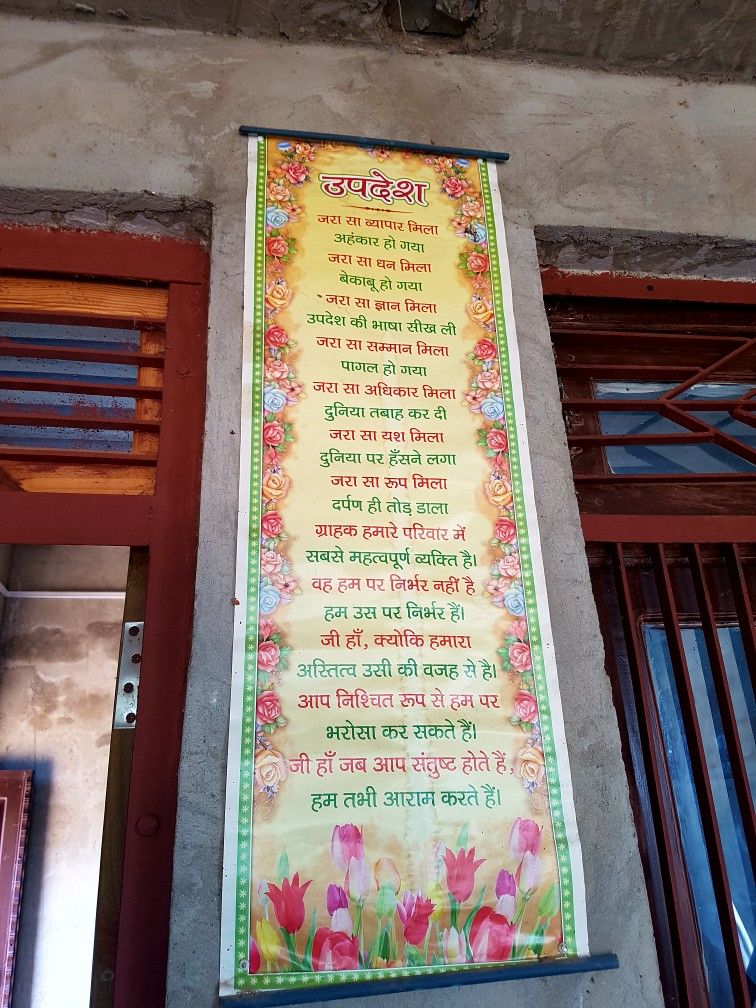 उपदेश
जरा सा व्यापार मिला
अहंकार हो गया
जरा सा धन मिला
बेकाबू हो गया
जरा सा ज्ञान मिला
उपदेश की भाषा सीख ली
जरा सा सम्मान मिला
पागल हो गया
जरा सा अधिकार मिला
दुनिया तबाह कर दी
जरा सा यश मिला
दुनिया पर हँसने लगा
जरा सा रूप मिला
दर्पण ही तोड़ डाला
ग्राहक हमारे परिवार में
सबसे महत्वपूर्ण व्यक्ति है।
वह हम पर निर्भर नहीं है
हम उस पर निर्भर हैं।
जी हाँ, क्योकि हमारा
अस्तित्व उसी की वजह से है।
आप निश्चित रूप से हम पर
भरोसा कर सकते हैं।
जी हाँ जब आप संतुष्ट होते हैं,
हम तभी आराम करते हैं।